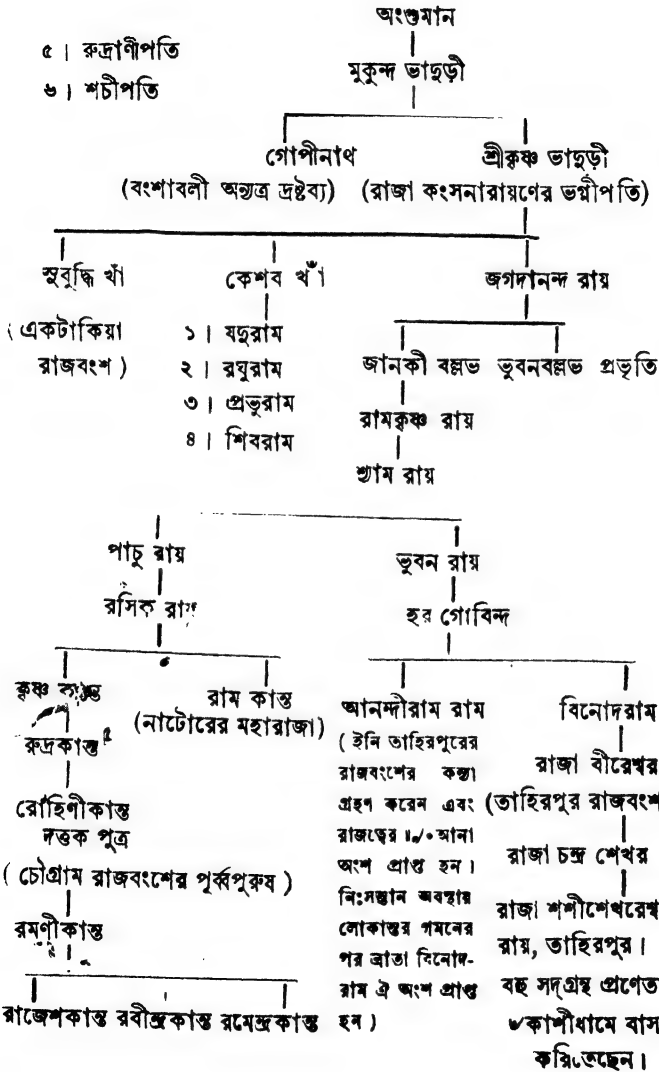 অংশুমান
৫। রুদ্রাণীপতি
মুকুন্দ ভাদুড়ী
৬। শচীপতি
গোপীনাথ শ্রীকৃষ্ণ ভাদুড়ী
(বংশাবলী অন্যত্র দ্রষ্টব্য) (রাজা কংসনারায়ণের ভগ্নীপতি)
সুবুদ্ধি খাঁ কেশব খাঁ জগদানন্দ রায়
(একটাকিয়া
রাজবংশ)
১। যদুরাম
২। রঘুরাম
৩। প্রভুরাম
৪। শিবরাম
জানকী বল্লভ ভুবনবল্লভ প্রভৃতি
রামকৃষ্ণ রায়
শ্যাম রায়
পাচু রায় ভুবন রায়
রসিক রায় হর গোবিন্দ
কৃষ্ণ কান্ত রাম কান্ত
(নাটোরের মহারাজা)
রুদ্রকান্ত
রোহিণীকান্ত
দত্তক পুত্র
(চৌগ্রাম রাজবংশের পূর্ব্বপুরুষ)
রমণীকান্ত
রাজেশকান্ত রবীন্দ্রকান্ত রমেন্দ্রকান্ত
আনন্দীরাম রাম
(ইনি তাহিরপুরের
রাজবংশের কন্যা
গ্রহণ করেন এবং
রাজত্বের ৷৷৴৹ আনা
অংশ প্রাপ্ত হন।
নিঃসন্তান অবস্থায়
লোকান্তর গমনের
পর ভ্রাতা বিনোদ-
রাম ঐ অংশ প্রাপ্ত
হন)
বিনোদরাম
রাজা বীরেশ্বর
(তাহিরপুর রাজবংশ
রাজা চন্দ্র শেখর
রাজা শশীশেখরেশ্ব
রায়, তাহিরপুর।
বহু সদ্‌গ্রন্থ প্রণেত
৺কাশীধামে বাস
করিতেছেন।